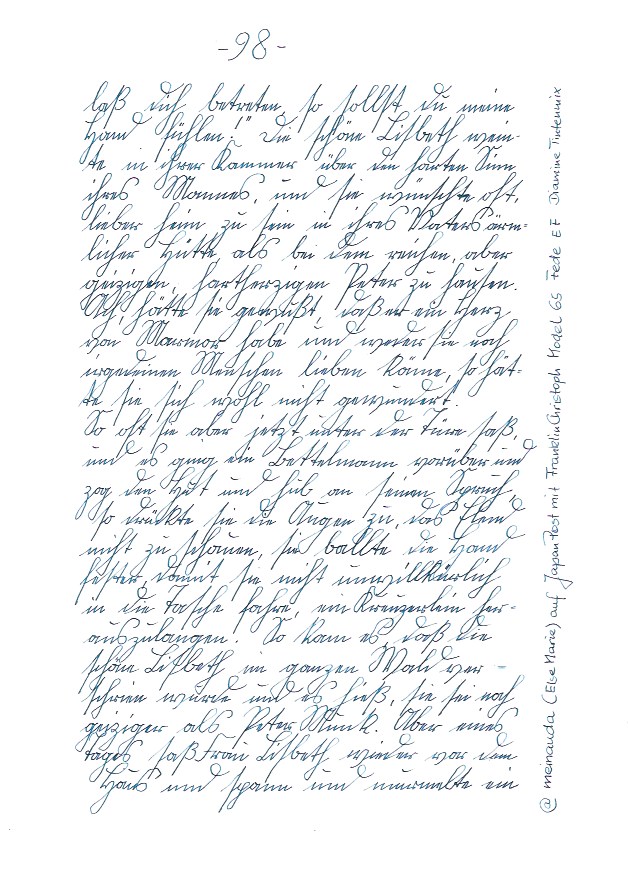 -98-
laß dich betreten, so sollst du meine
Hand fühlen!" Die schöne Lisbeth wein-
te in ihrer Kammer über den harten Sinn
ihres Mannes, und sie wünschte oft,
lieber heim zu sein in ihres Vaters ärm-
licher Hütte, als bei dem reichen, aber
geizigen, hartherzigen Peter zu hausen.
Ach, hätte sie gewußt, daß er ein Herz
von Marmor habe und weder sie noch
irgendeinen Menschen lieben könne, so hät-
te sie sich wohl nicht gewundert.
So oft sie aber jetzt unter der Türe saß,
und es ging ein Bettelmann vorüber und
zog den Hut und hub an seinen Spruch,
so drückte sie die Augen zu, das Elend
nicht zu schauen, sie ballte die Hand
fester, damit sie nicht unwillkürlich
in die Tasche fahre, ein Kreuzerlein her-
auszulangen. So kam es, daß die
schöne Lisbeth im ganzen Wald ver-
schrien wurde und es hieß, sie sei noch
geiziger als Peter Munk. Aber eines
Tages saß Frau Lisbeth wieder vor dem
Haus und spann und murmelte ein
@meinauda (Else Marie) auf Japan Post mit Franklin Christoph Model 65 Feder EF Diamine Tintenmix